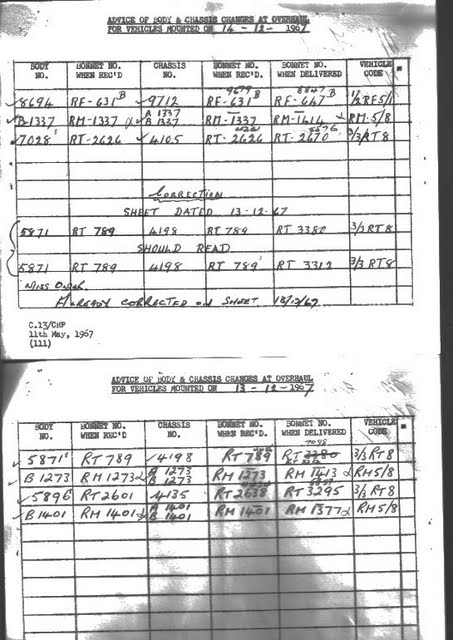 ADVICE OF BODY & CHASSIS CHANGES AT OVERHAUL
FOR VEHICLES MOUNTED ON 14-12-1967
BODY NO. BONNET NO. WHEN REC'D CHASSIS NO. BONNET NO. WHEN REC'D. BONNET NO. WHEN DELIVERED VEHICLE CODE
9679 8847
8694 RF-631B 9712 RF-631B RF-647B 1/2RF5/1
A 1337
B1337 RM-1337 B 1337 RM-1337 RM-1414 RM-5/8
7028 RT-2626 4105 RT-2626 RT-2670 3/3RT8
CORRECTION
SHEET DATED 13-12-67
5871 RT 789 4198 RT 789 RT 3380 3/3RT8
SHOULD READ
5871 RT 789 4198 RT 789 RT 3312 3/3RT8
ALREADY CORRECTED ON SHEET 13/12/67
C.13/CHP
11th May, 1967
(111)
ADVICE OF BODY & CHASSIS CHANGES AT OVERHAUL
FOR VEHICLES MOUNTED ON 13-12-1967
BODY NO. BONNET NO. WHEN REC'D CHASSIS NO. BONNET NO. WHEN REC'D. BONNET NO. WHEN DELIVERED VEHICLE CODE
7098
5871 RT789 4198 RT789 RT 3380 3/3RT8
A 1273
B1273 RM1273 B 1273 RM1273 RM1413 RM5/8
5896 RT2601 4135 RT2638 RT3295 3/3RT8
A 1401
B1401 RM1401 B 1401 RM1401 RM1377 RM5/8